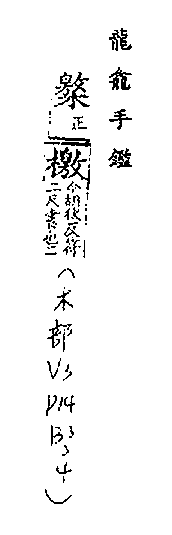 龍龕手鑑
檄
正
檄
今胡狄反符
二尺書也二
(木部 V3 P14 B3,4)